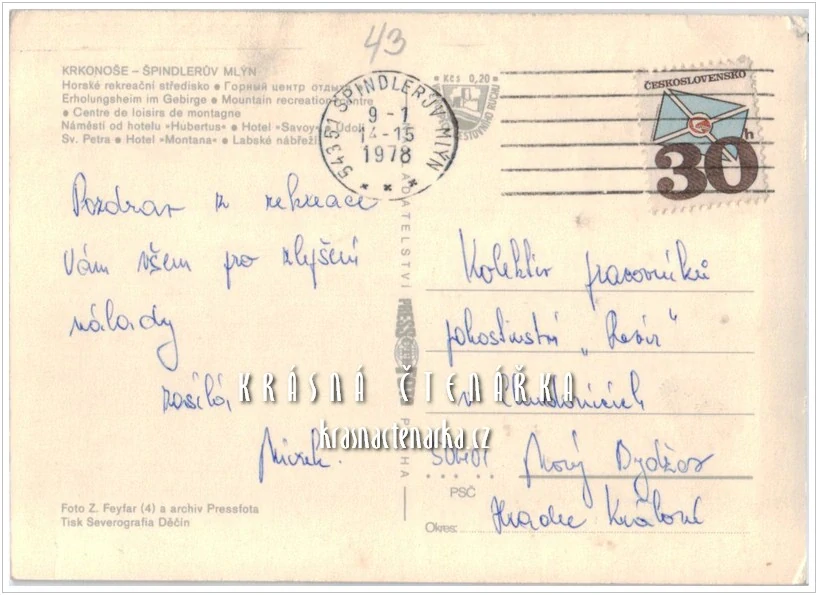 43
KRKONOŠE – ŠPINDLERŮV MLÝN
Horské rekreační středisko ● Горный центр
Erholungsheim im Gebirge ● Mountain recreation centre
● Centre de loisirs de montagne
Náměstí od hotelu »Hubertus« ● Hotel »Savoy«
Sv. Petra ● Hotel »Montana« ● Labské nábřeží
Kčs 0,20
543 51 ŠPINDLERŮV MLÝN
9 - 1
14-15
1978
ČESKOSLOVENSKO
30h
Pozdrav z rekreace
Vám všem pro zlepšení
nálady
zasílá
Mirek.
Kolektiv pracovníků
pohostinství
v
Nový Bydžov
PSČ
Okres:
Hradec Králové
KRÁSNÁ ČTENÁŘKA
krasnactenarka.cz
Foto Z. Feyfar (4) a archiv Pressfota
Tisk Severografia Děčín